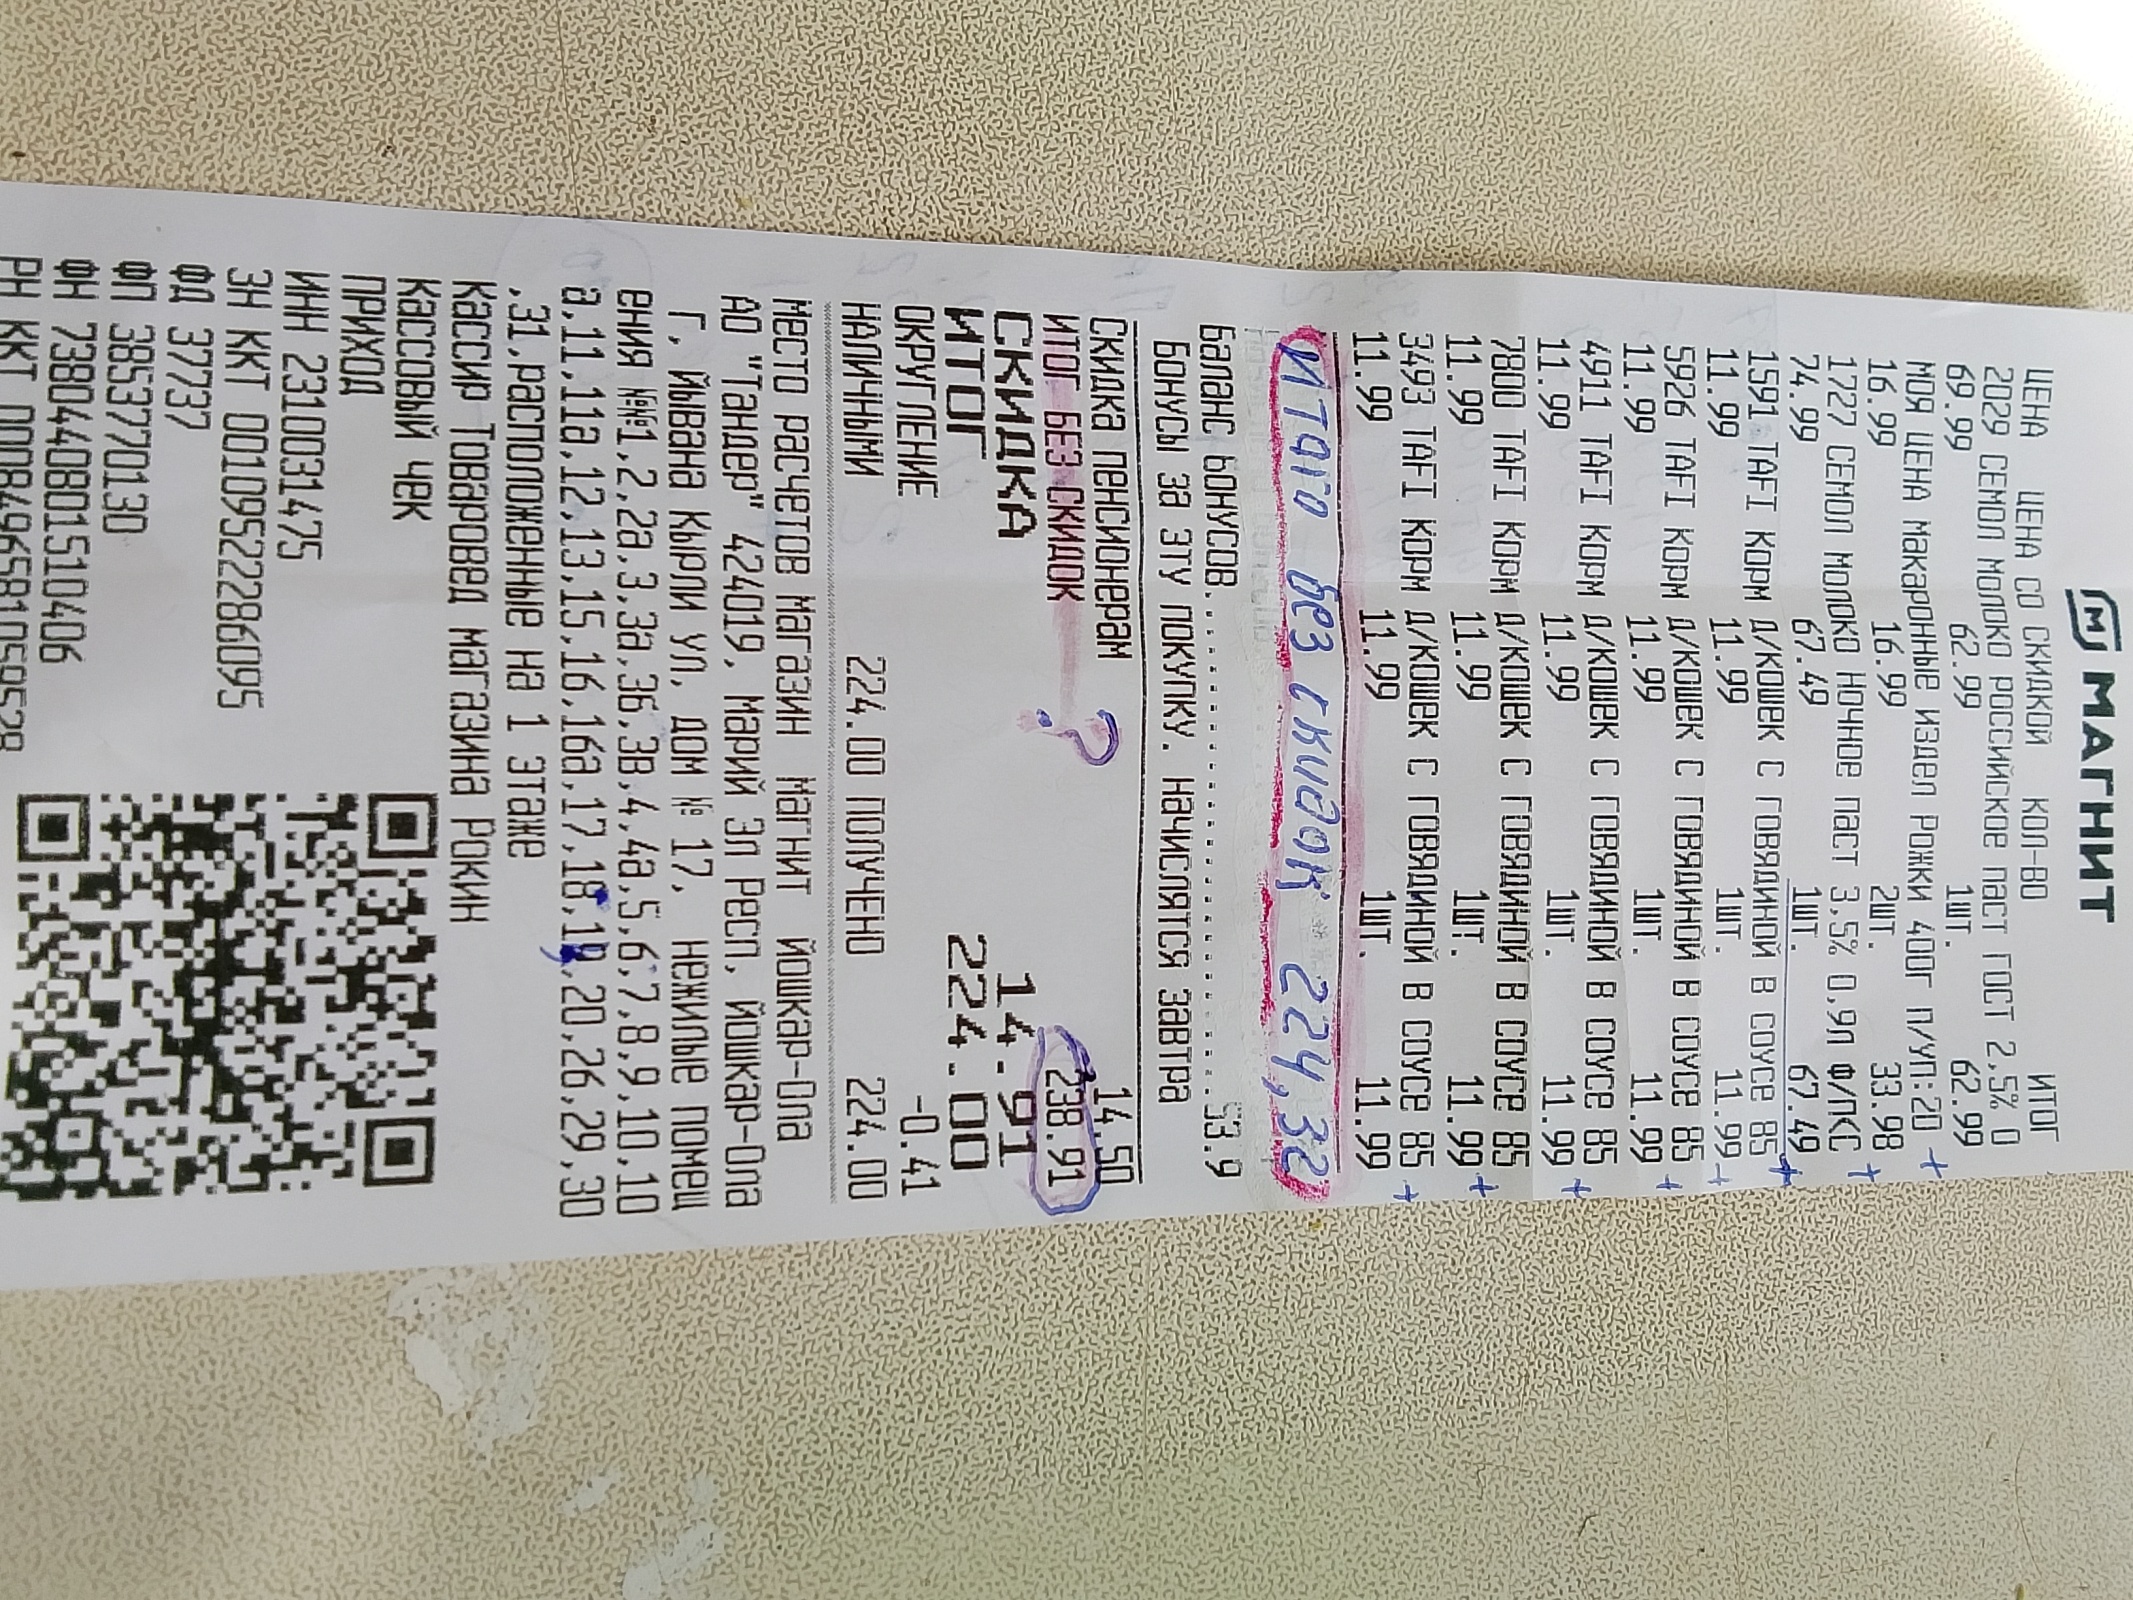 МАГНИТ
ЦЕНА ЦЕНА СО СКИДКОЙ КОЛ-ВО ИТОГ
2029 СЕМОЛ МОЛОКО РОССИЙСКОЕ ПАСТ ГОСТ 2,5% 0
69.99 62.99 1ШТ. 62.99
МОЯ ЦЕНА Макаронные издел Рожки 400г п/уп:20 +
16.99 16.99 2ШТ. 33.98
1727 СЕМОЛ МОЛОКО НОЧНОЕ ПАСТ 3,5% 0,9Л Ф/ПКС +
74.99 67.49 1ШТ. 67.49
1591 TAFI Корм д/кошек С ГОВЯДИНОЙ В СОУСЕ 85 +
11.99 11.99 1ШТ. 11.99 +
5926 TAFI Корм д/кошек С ГОВЯДИНОЙ В СОУСЕ 85
11.99 11.99 1ШТ. 11.99 +
4911 TAFI Корм д/кошек С ГОВЯДИНОЙ В СОУСЕ 85
11.99 11.99 1ШТ. 11.99 +
7800 TAFI Корм д/кошек С ГОВЯДИНОЙ В СОУСЕ 85
11.99 11.99 1ШТ. 11.99 +
3493 TAFI Корм д/кошек С ГОВЯДИНОЙ В СОУСЕ 85 +
11.99 11.99 1ШТ. 11.99
Итого без скидок 224,32
Баланс бонусов..........53.9
Бонусы за эту покупку. начислятся завтра
Скидка пенсионерам 14.50
ИТОГ БЕЗ СКИДОК ? 238.91
СКИДКА 14.91
ИТОГ 224.00
ОКРУГЛЕНИЕ -0.41
НАЛИЧНЫМИ 224.00
224.00 ПОЛУЧЕНО
Место расчетов магазин Магнит Йошкар-Ола
АО "Тандер" 424019, Марий Эл Респ, Йошкар-Ола
г, Йывана Кырли ул, дом № 17, нежилые помещ
ения №№1,2,2а,3,3а,3б,3в,4,4а,5,6,7,8,9,10,10
а,11,11а,12,13,15,16,16а,17,18,19,20,26,29,30
,31,расположенные на 1 этаже
Кассир Товаровед магазина Рокин
Кассовый чек
ПРИХОД
ИНН 2310031475
ЗН ККТ 00109522286095
ФД 37737
ФП 3853770130
ФН 7380440801510406
РН ККТ 0008496581059528